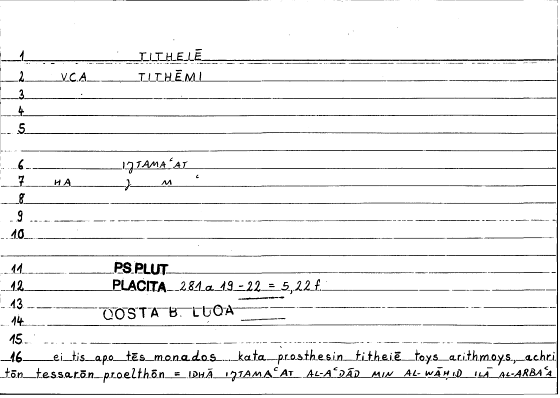 1 TITHEIĒ
2 VCA TITHĒMI
3
4
5
6 IJTAMAʿAT
7 HA J M ʿ
8
9
10
11 PS.PLUT
12 PLACITA 281a 19-22 = 5,22f
13
QOSTA B. LUQA
14
15
16 ei tis apo tēs monados kata prosthesin titheiē toys arithmoys, achri
tōn tessarōn proelthōn = IDHĀ IJTAMAʿAT AL-AʿDĀD MIN AL-WĀḤID ILĀ AL-ARBAʿA